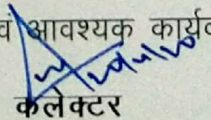 वं आवश्यक कार्यव
कलेक्टर